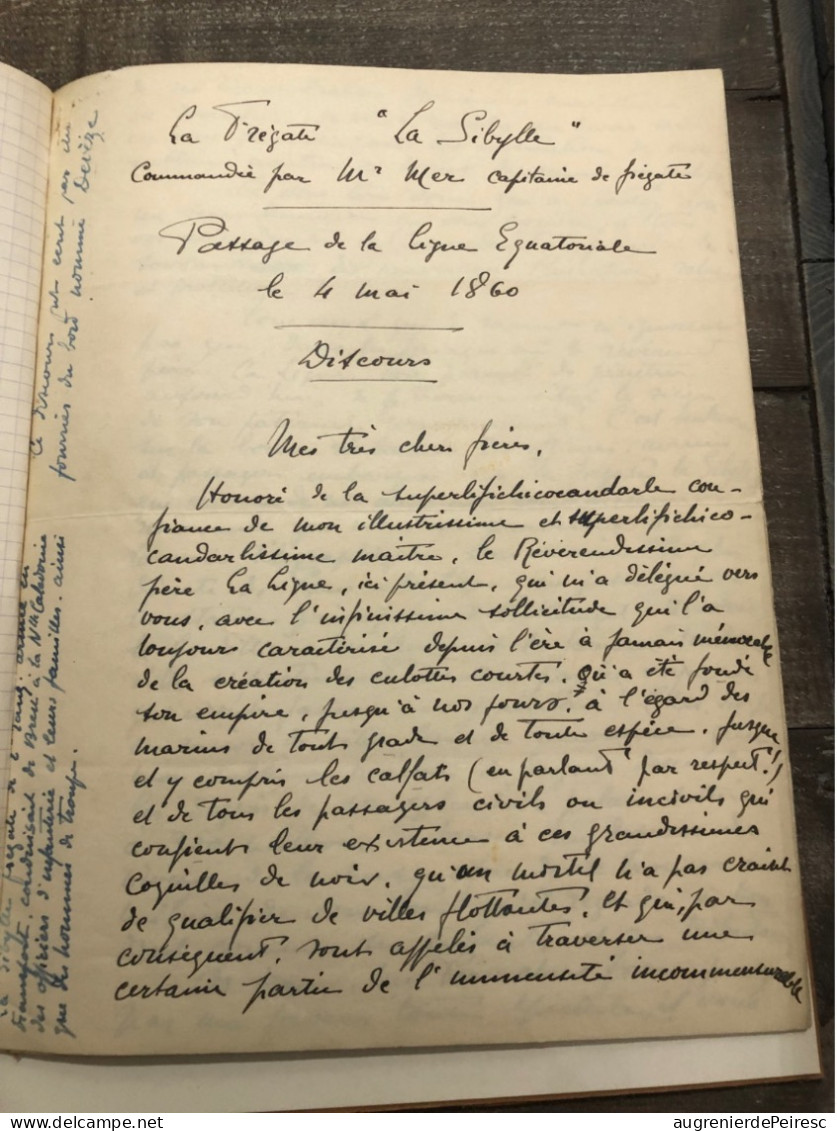 La Frégate "La Sibylle"
Commandée par Mr Mer capitaine de frégate
Passage de la ligne Equatoriale
le 4 mai 1860
Discours
Mes très chers frères,
Honoré de la superlifichicocandarle con-
fiance de mon illustrissime et superlifichico-
candarlissime maître, le Révérendissime
père La Ligne, ici présent, qui m'a délégué vers
vous, avec l'infinissime sollicitude qui l'a
toujours caractérisé depuis l'ère à jamais mémorable
de la création des culottes courtes, qu'a été fondé
son empire, jusqu'à nos jours, à l'égard des
marins de tout grade et de toute espèce, jusque
et y compris les calfats (en parlant par respect!)
et de tous les passagers civils ou incivils qui
confient leur existence à ces grandissimes
coquilles de noix, qu'un mortel n'a pas craint
de qualifier de villes flottantes, et qui, par
conséquent, sont appelés à traverser une
certaine partie de l'immensité incommensurable
Ce discours fut écrit par un
fourrier du bord nommé Devèze
La Sibylle frégate de 2e rang, armée en
transport, conduisait de Brest à la Nlle Calédonie
des officiers d'infanterie et leurs familles, ainsi
que des hommes de troupe.
augrenierdePeiresc